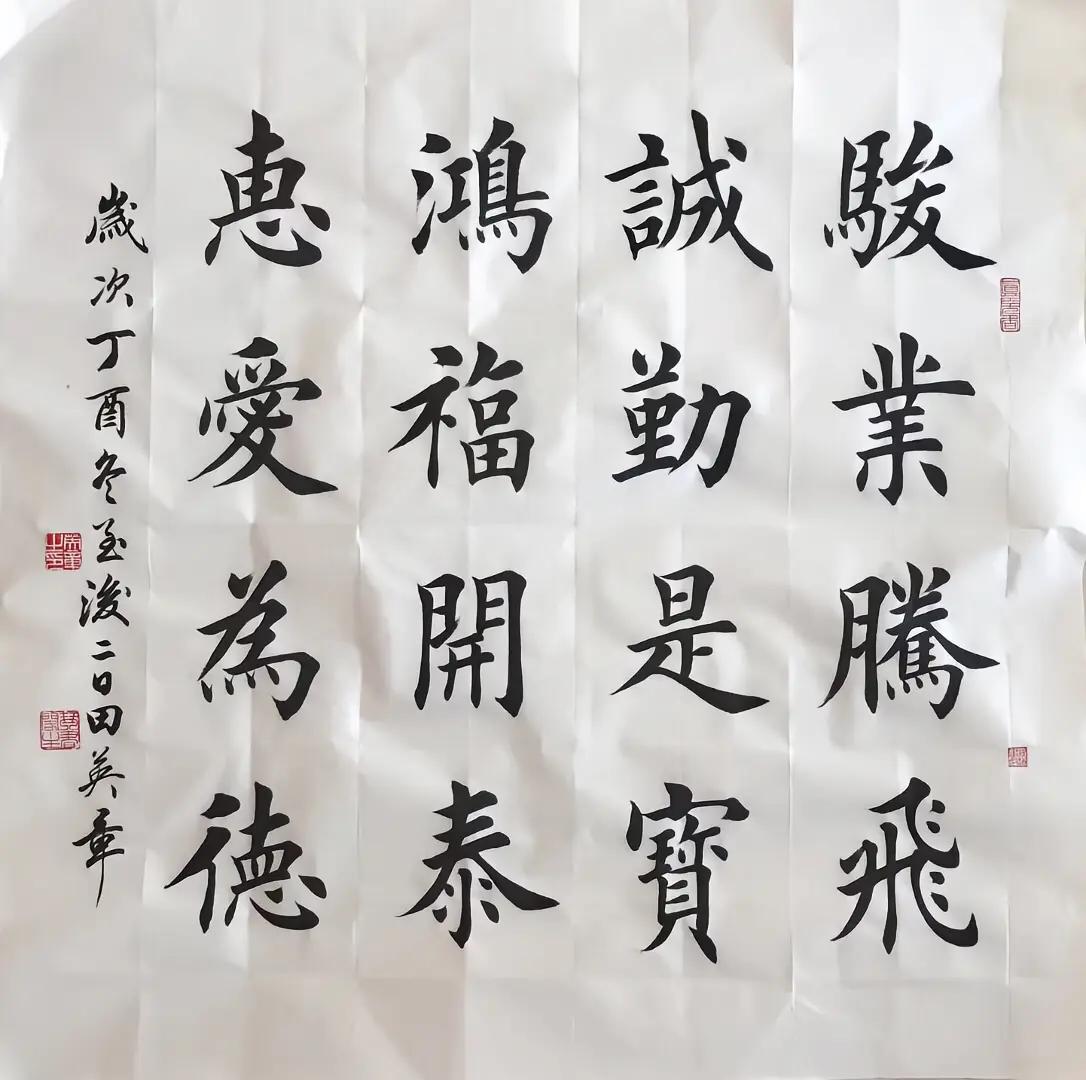 駿業騰飛
誠勤是寶
鴻福開泰
恵愛為徳
歲次丁酉冬至後二日田英章